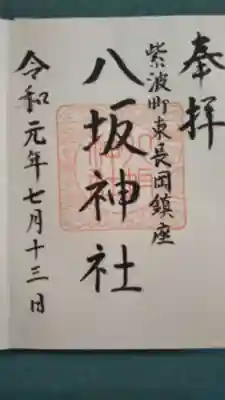 奉拝
紫波町東長岡鎮座
八坂神社
令和元年七月十三日